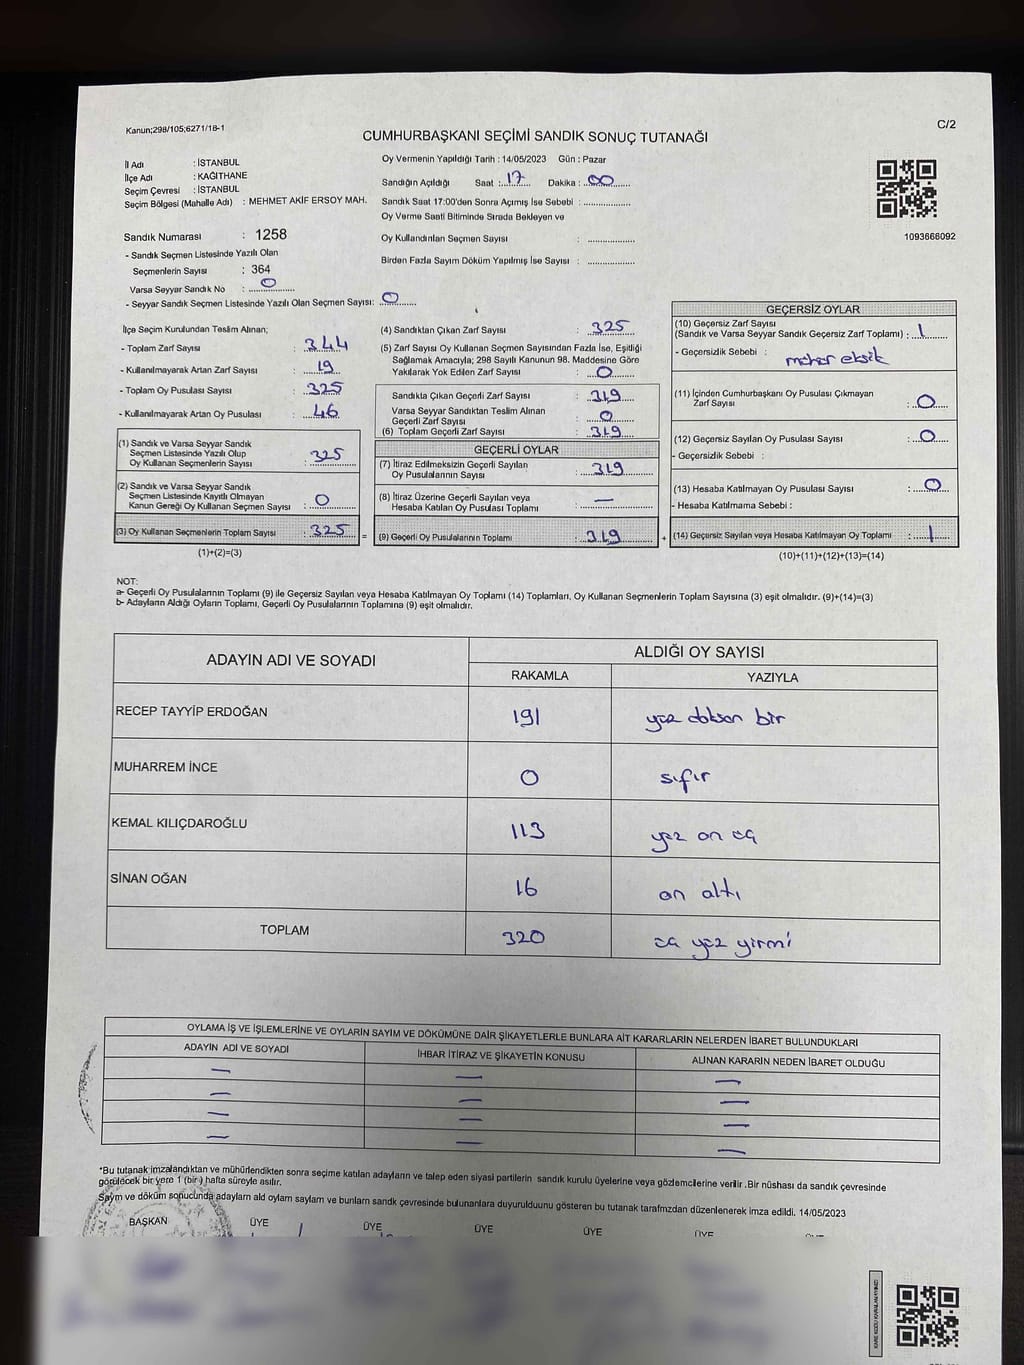 Kanun;298/105;6271/18-1
C/2
CUMHURBAŞKANI SEÇİMİ SANDIK SONUÇ TUTANAĞI
İl Adı : İSTANBUL
İlçe Adı : KAĞITHANE
Seçim Çevresi : İSTANBUL
Seçim Bölgesi (Mahalle Adı) : MEHMET AKİF ERSOY MAH.
Sandık Numarası : 1258
- Sandık Seçmen Listesinde Yazılı Olan
Seçmenlerin Sayısı : 364
Varsa Seyyar Sandık No : 0
- Seyyar Sandık Seçmen Listesinde Yazılı Olan Seçmen Sayısı: 0
Oy Vermenin Yapıldığı Tarih : 14/05/2023 Gün : Pazar
Sandığın Açıldığı Saat : 17 Dakika : 00
Sandık Saat 17:00'den Sonra Açımış İse Sebebi :
Oy Verme Saati Bitiminde Sırada Bekleyen ve
Oy Kullandırılan Seçmen Sayısı :
Birden Fazla Sayım Döküm Yapılmış İse Sayısı :
1093668092
İlçe Seçim Kurulundan Teslim Alınan;
- Toplam Zarf Sayısı : 344
- Kullanılmayarak Artan Zarf Sayısı : 19
- Toplam Oy Pusulası Sayısı : 325
- Kullanılmayarak Artan Oy Pusulası : 46
(1) Sandık ve Varsa Seyyar Sandık
Seçmen Listesinde Yazılı Olup
Oy Kullanan Seçmenlerin Sayısı : 325
(2) Sandık ve Varsa Seyyar Sandık
Seçmen Listesinde Kayıtlı Olmayan
Kanun Gereği Oy Kullanan Seçmen Sayısı : 0
(3) Oy Kullanan Seçmenlerin Toplam Sayısı : 325
(1)+(2)=(3)
=
(4) Sandıktan Çıkan Zarf Sayısı : 325
(5) Zarf Sayısı Oy Kullanan Seçmen Sayısından Fazla İse, Eşitliği
Sağlamak Amacıyla; 298 Sayılı Kanunun 98. Maddesine Göre
Yakılarak Yok Edilen Zarf Sayısı : 0
Sandıkta Çıkan Geçerli Zarf Sayısı : 319
Varsa Seyyar Sandıktan Teslim Alınan
Geçerli Zarf Sayısı : 0
(6) Toplam Geçerli Zarf Sayısı : 319
GEÇERLİ OYLAR
(7) İtiraz Edilmeksizin Geçerli Sayılan
Oy Pusulasının Sayısı : 319
(8) İtiraz Üzerine Geçerli Sayılan veya
Hesaba Katılan Oy Pusulası Toplamı : —
(9) Geçerli Oy Pusulalarının Toplamı : 319
+
GEÇERSİZ OYLAR
(10) Geçersiz Zarf Sayısı
(Sandık ve Varsa Seyyar Sandık Geçersiz Zarf Toplamı) : 1
- Geçersizlik Sebebi : mühür eksik
(11) İçinden Cumhurbaşkanı Oy Pusulası Çıkmayan
Zarf Sayısı : 0
(12) Geçersiz Sayılan Oy Pusulası Sayısı : 0
- Geçersizlik Sebebi :
(13) Hesaba Katılmayan Oy Pusulası Sayısı : 0
- Hesaba Katılmama Sebebi :
(14) Geçersiz Sayılan veya Hesaba Katılmayan Oy Toplamı : 1
(10)+(11)+(12)+(13)=(14)
NOT:
a- Geçerli Oy Pusulalarının Toplamı (9) ile Geçersiz Sayılan veya Hesaba Katılmayan Oy Toplamı (14) Toplamları, Oy Kullanan Seçmenlerin Toplam Sayısına (3) eşit olmalıdır. (9)+(14)=(3)
b- Adayların Aldığı Oyların Toplamı, Geçerli Oy Pusulalarının Toplamına (9) eşit olmalıdır.
ADAYIN ADI VE SOYADI
ALDIĞI OY SAYISI
RAKAMLA YAZIYLA
RECEP TAYYİP ERDOĞAN 191 yüz doksan bir
MUHARREM İNCE 0 sıfır
KEMAL KILIÇDAROĞLU 113 yüz on üç
SİNAN OĞAN 16 on altı
TOPLAM 320 üç yüz yirmi
OYLAMA İŞ VE İŞLEMLERİNE VE OYLARIN SAYIM VE DÖKÜMÜNE DAİR ŞİKAYETLERLE BUNLARA AİT KARARLARIN NELERDEN İBARET BULUNDUKLARI
ADAYIN ADI VE SOYADI İHBAR İTİRAZ VE ŞİKAYETİN KONUSU ALINAN KARARIN NEDEN İBARET OLDUĞU
— — —
— — —
— — —
— — —
*Bu tutanak imzalandıktan ve mühürlendikten sonra seçime katılan adayların ve talep eden siyasi partilerin sandık kurulu üyelerine veya gözlemcilerine verilir .Bir nüshası da sandık çevresinde
görülecek bir yere 1 (bir) hafta süreyle asılır.
Sayım ve döküm sonucunda adayların ald oyların sayların ve bunların sandık çevresinde bulunanlara duyurulduunu gösteren bu tutanak tarafmzdan düzenlenerek imza edildi. 14/05/2023
BAŞKAN ÜYE ÜYE ÜYE ÜYE ÜYE ÜYE